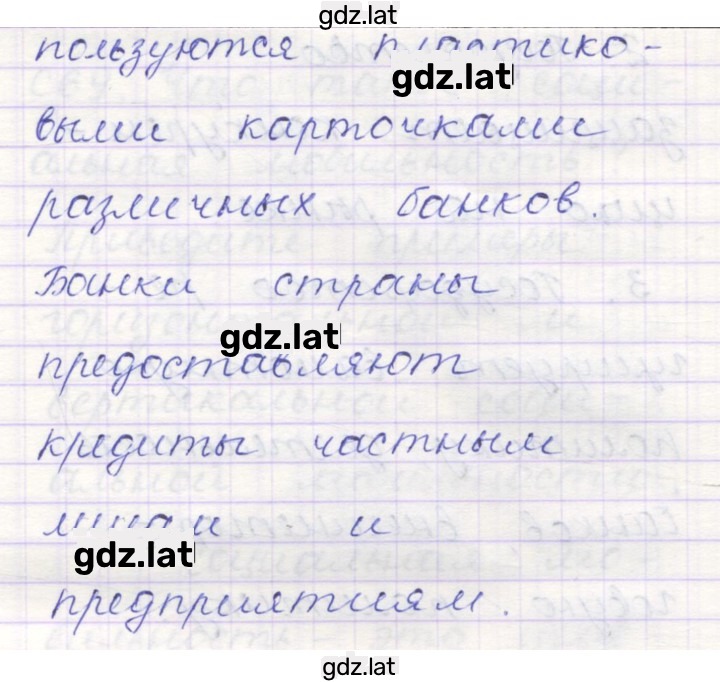 gdz.lat
пользуются пластико-
gdz.lat
выми карточками
различных банков.
Банки страны
gdz.lat
предоставляют
кредиты частным
лицам и
gdz.lat
предприятиям.
gdz.lat